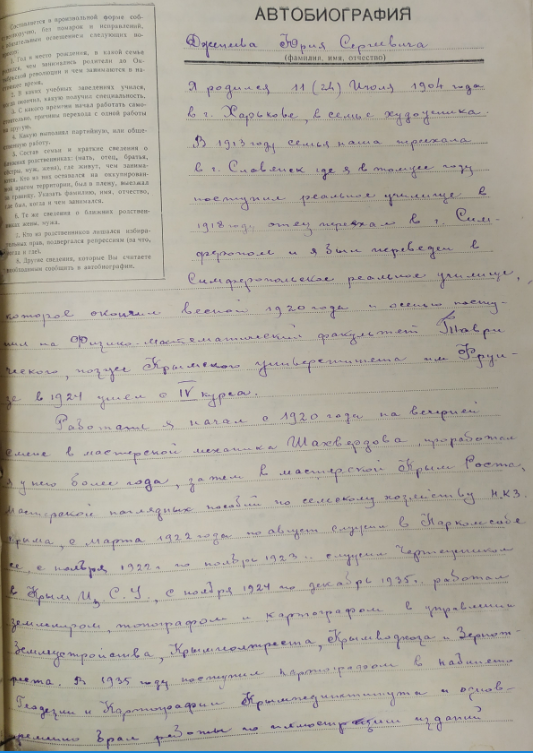 Составляется в произвольной форме соб-
ственноручно, без помарок и исправлений,
с обязательным освещением следующих во-
просов:
1. Год и место рождения, в какой семье
родились, чем занимались родители до Ок-
тябрьской революции и чем занимаются в на-
стоящее время.
2. В каких учебных заведениях учился,
какую получил специальность.
3. С какого времени начал работать само-
стоятельно, причина перехода с одной работы
на другую.
4. Какую выполнял партийную, или обще-
ственную работу.
5. Состав семьи и краткие сведения о
ближних родственниках: (мать, отец, братья,
сестры, муж, жена), где живут, чем занима-
ются. Кто из них оставался на оккупирован-
ной врагом территории, был в плену, выезжал
за границу. Указать фамилию, имя, отчество,
где был, когда и чем занимался.
6. Те же сведения о ближних родствен-
никах жены, мужа.
7. Кто из родственников лишался избира-
тельных прав, подвергался репрессии (за что,
когда и где).
8. Другие сведения, которые Вы считаете
необходимым сообщить в автобиографии.
АВТОБИОГРАФИЯ
Юрия Сергеевича
(фамилия, имя, отчество)
Я родился 11 (24) Июля 1904 года
в г. Харькове, в семье художника.
В 1913 году семья наша переехала
в г. Славянск где я в том же году
поступил реальное училище в
1918 году отец переехал в г. Сим-
ферополь и я был переведен в
Симферопольское реальное училище,
которое окончил весной 1920 года и осенью посту-
пил на Физико-математический факультет Таври
ческого, позже Крымского университета им Фрун-
зе в 1924 ушел с IV курса.
Работать я начал с 1920 года на вечерней
смене в мастерской механика Шахвердова, проработал
у него более года, затем в мастерской Крым Роста,
мастерской наглядных пособий по сельскому хозяйству Н.К.З.
Крыма, с марта 1922 года по август служил в Наркомсобе
се, с ноября 1922 г. по ноябрь 1923 г. служил Чертежником
в Крым Ц.С.У., с ноября 1924 по декабрь 1935 г. работал
землемером, топографом и картографом в управлении
Землеустройства, Крымводхоза и Зернот-
реста. В 1935 году поступил картографом в кабинет
Геодезии и Картографии Крымпединститута и однов-
ременно брал работы по иллюстрации изданий